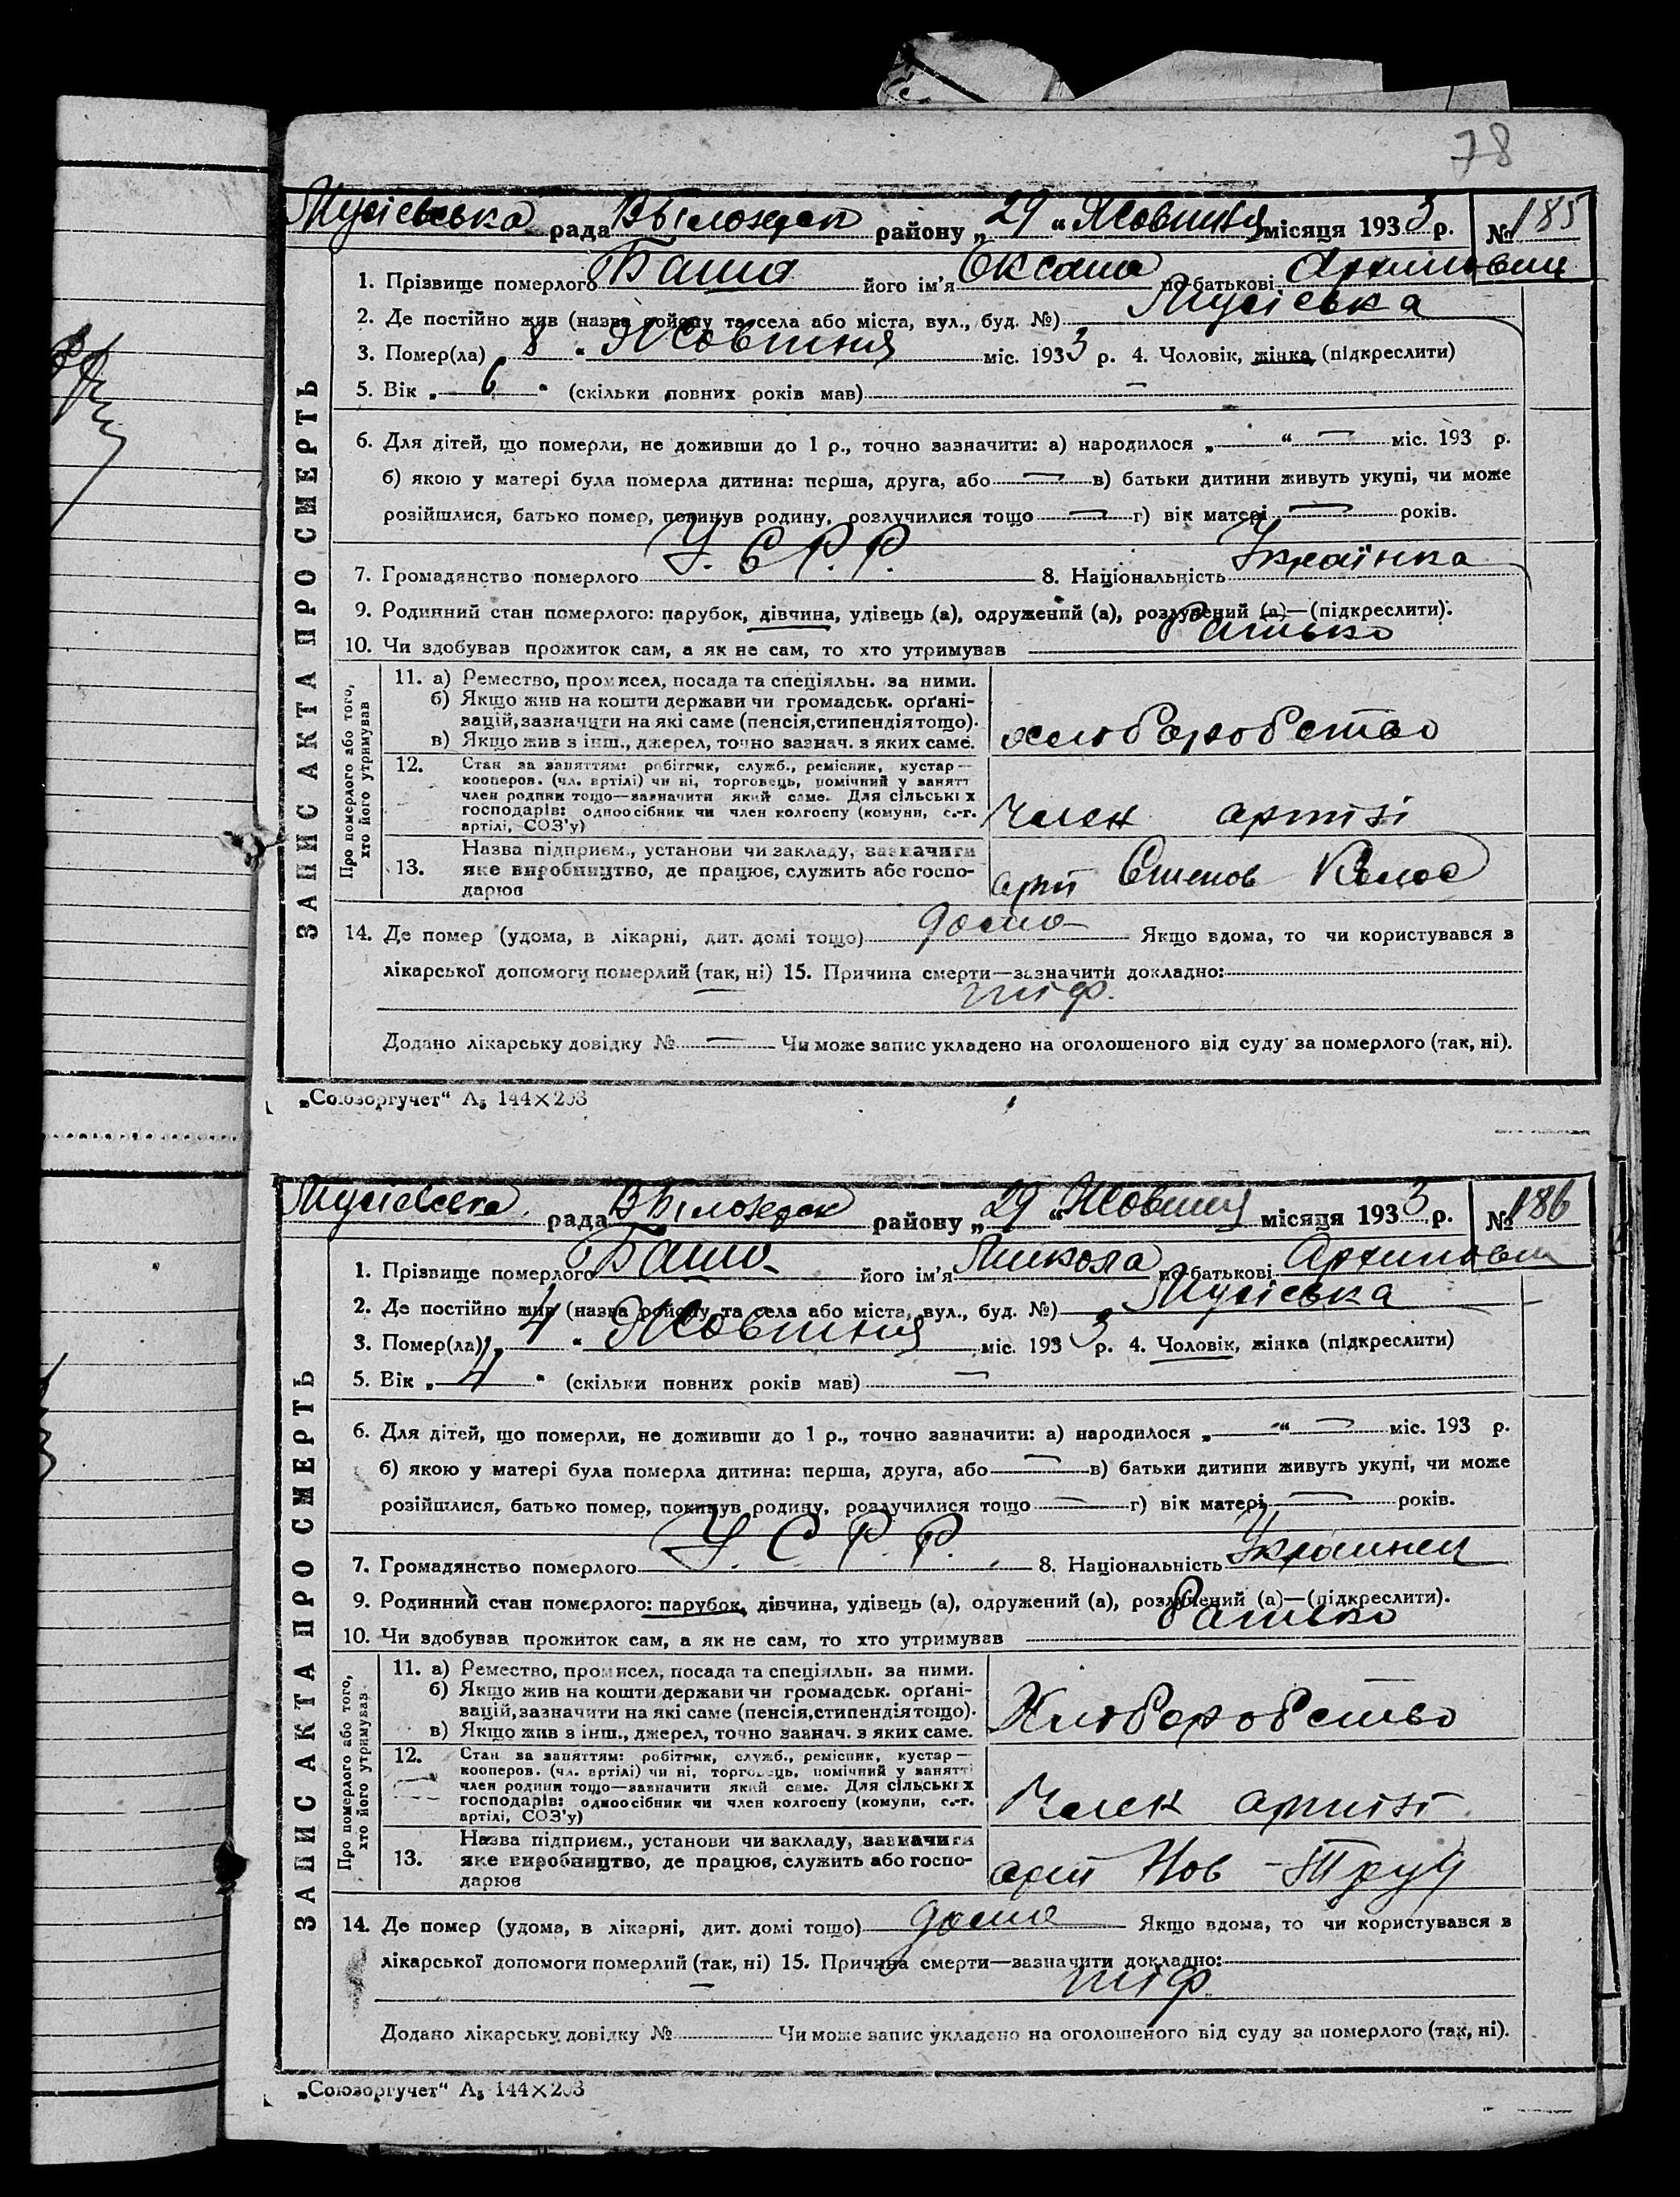 78
Мусіевська рада В Білозерск району „29“ Жовтня місяця 1933 р. № 185
1. Прізвище померлого Баша його ім'я Оксана по-батькові
2. Де постійно жив (назва району та села або міста, вул., буд. №) Мусієвка
3. Помер(ла) „8“ Жовтня міс. 1933 р. 4. Чоловік, жінка (підкреслити)
5. Вік „6“ (скільки повних років мав) —
6. Для дітей, що померли, не доживши до 1 р., точно зазначити: а) народилося „—“ — міс. 193 р.
б) якою у матері була померла дитина: перша, друга, або — в) батьки дитини живуть укупі, чи може
розійшлися, батько помер, покинув родину, розлучилися тощо — г) вік матері — років.
7. Громадянство померлого У. С. Р. Р. 8. Національність Українка
9. Родинний стан померлого: парубок, дівчина, удівець (а), одружений (а), розлучений (а)—(підкреслити).
10. Чи здобував прожиток сам, а як не сам, то хто утримував Батько
ЗАПИС АКТА ПРО СМЕРТЬ
Про померлого або того,
хто його утримував
11. а) Ремество, промисел, посада та спеціяльн. за ними.
б) Якщо жив на кошти держави чи громадськ. орґані-
зацій, зазначити на які саме (пенсія, стипендія тощо).
в) Якщо жив з інш., джерел, точно зазнач. з яких саме.
хлюборобство
12. Стан за заняттям: робітник, служб., ремісник, кустар—
кооперов. (чл. артілі) чи ні, торговець, помічний у занятт
член родини тощо—зазначити який саме. Для сільських
господарів: одноосібник чи член колгоспу (комуни, с.-г.
артілі, СОЗ'у)
Член артізі
13. Назва підприєм., установи чи закладу, зазначити
яке виробництво, де працює, служить або госпо-
дарює
арт Степов Колос
14. Де помер (удома, в лікарні, дит. домі тощо) дома Якщо вдома, то чи користувався з
лікарської допомоги померлий (так, ні) 15. Причина смерти—зазначити докладно:
тіф.
Додано лікарську довідку № — Чи може запис укладено на оголошеного від суду за померлого (так, ні).
„Союзоргучет“ А₅ 144×203
Мусіевска рада В Білозерск району „29“ Жовтня місяця 1933 р. № 186
1. Прізвище померлого Баша його ім'я Микола по-батькові
2. Де постійно жив (назва району та села або міста, вул., буд. №) Мусієвка
3. Помер(ла) Жовтня міс. 1933 р. 4. Чоловік, жінка (підкреслити)
5. Вік „4“ (скільки повних років мав) —
6. Для дітей, що померли, не доживши до 1 р., точно зазначити: а) народилося „—“ — міс. 193 р.
б) якою у матері була померла дитина: перша, друга, або — в) батьки дитини живуть укупі, чи може
розійшлися, батько помер, покинув родину, розлучилися тощо — г) вік матері — років.
7. Громадянство померлого У. С. Р. Р. 8. Національність Украинец
9. Родинний стан померлого: парубок, дівчина, удівець (а), одружений (а), розлучений (а)—(підкреслити).
10. Чи здобував прожиток сам, а як не сам, то хто утримував Батько
ЗАПИС АКТА ПРО СМЕРТЬ
Про померлого або того,
хто його утримував
11. а) Ремество, промисел, посада та спеціяльн. за ними.
б) Якщо жив на кошти держави чи громадськ. орґані-
зацій, зазначити на які саме (пенсія, стипендія тощо).
в) Якщо жив з інш., джерел, точно зазнач. з яких саме.
Хлюборобство
12. Стан за заняттям: робітник, служб., ремісник, кустар—
кооперов. (чл. артілі) чи ні, торговець, помічний у занятті
член родини тощо—зазначити який саме. Для сільських
господарів: одноосібник чи член колгоспу (комуни, с.-г.
артілі, СОЗ'у)
Член артізі
13. Назва підприєм., установи чи закладу, зазначити
яке виробництво, де працює, служить або госпо-
дарює
арт Нов Труд
14. Де помер (удома, в лікарні, дит. домі тощо) дома Якщо вдома, то чи користувався з
лікарської допомоги померлий (так, ні) 15. Причина смерти—зазначити докладно:
тіф.
Додано лікарську довідку № Чи може запис укладено на оголошеного від суду за померлого (так, ні).
„Союзоргучет“ А₅ 144×203